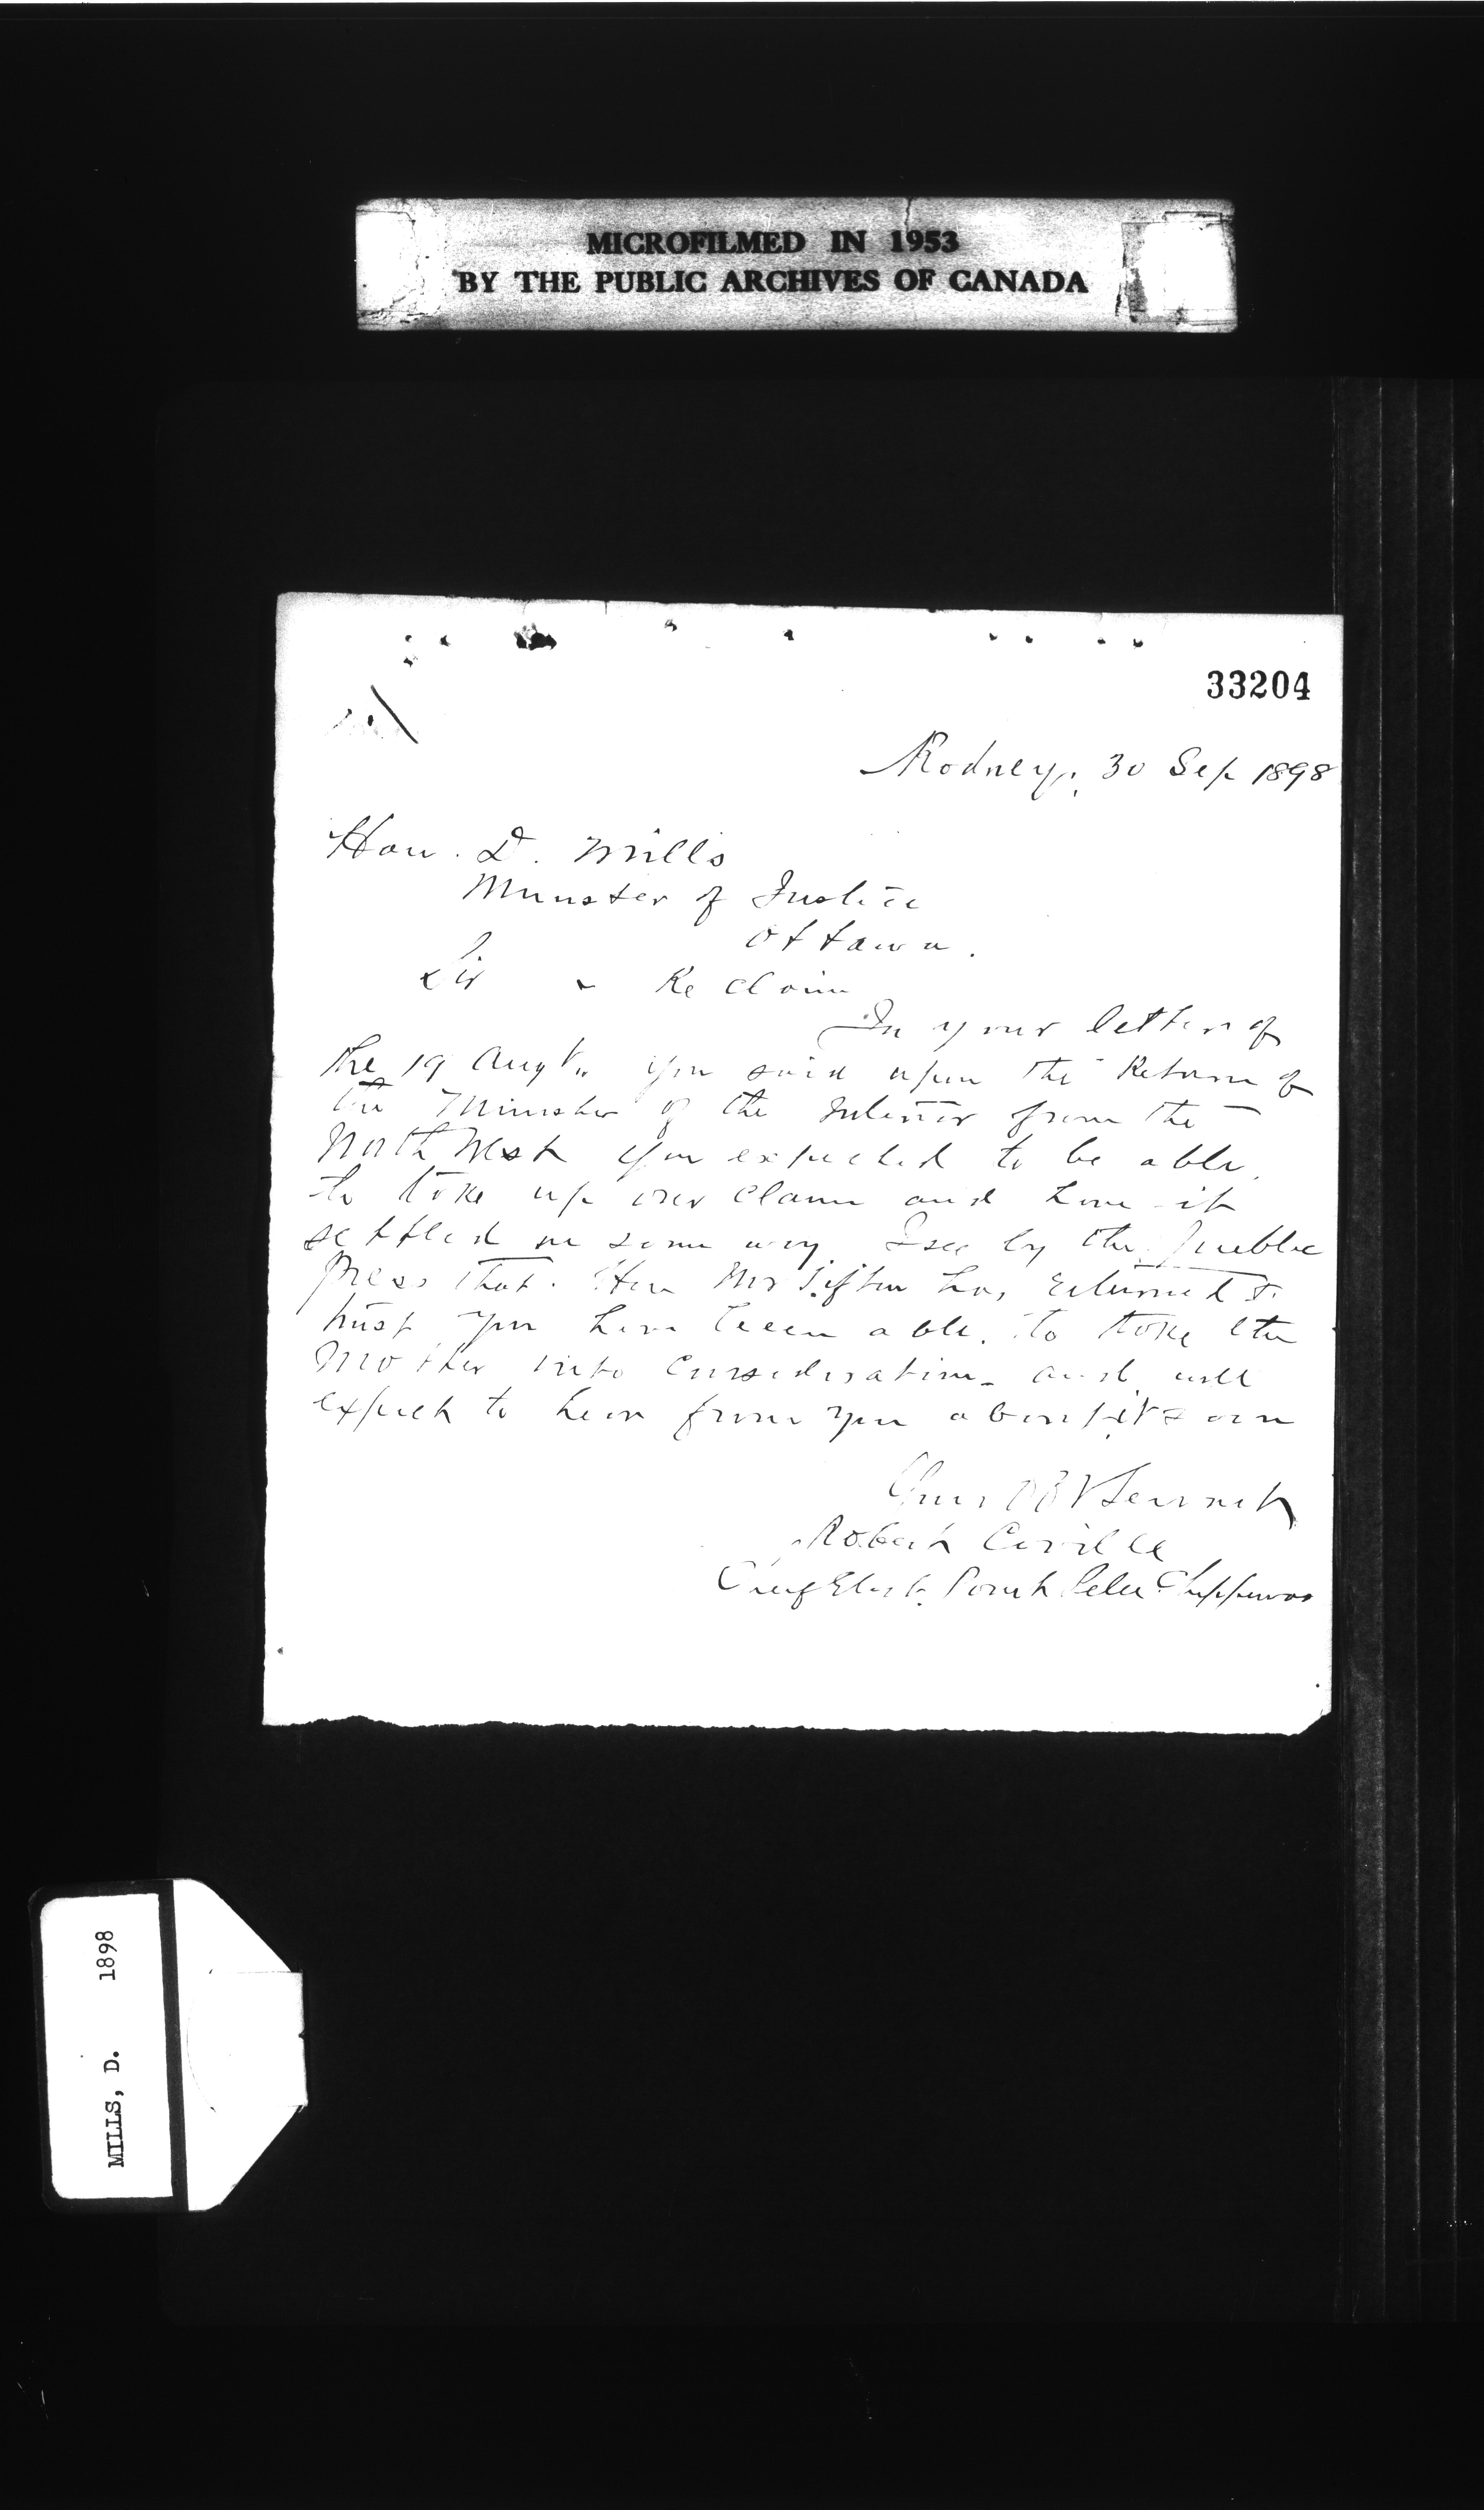 MICROFILMED IN 1953
BY THE PUBLIC ARCHIVES OF CANADA
33204
Rodney, 30 Sep 1898
Hon. D. Mills
Minister of Justice
Ottawa.
Sir Re Claim
In your letter of
the 19 Augt. you said upon the Return of
the Minister of the Interior from the
North West you expected to be able
to take up our Claim and have it
settled in some way I see by the Public
press that Hon Mr Sifton has returned &
trust you have been able to take the
Matter into Consideration and will
expect to hear from you about it soon
Your Ob Servant
Robert
Chief Elect. Point Pelee Chippewas
MILLS, D. 1898